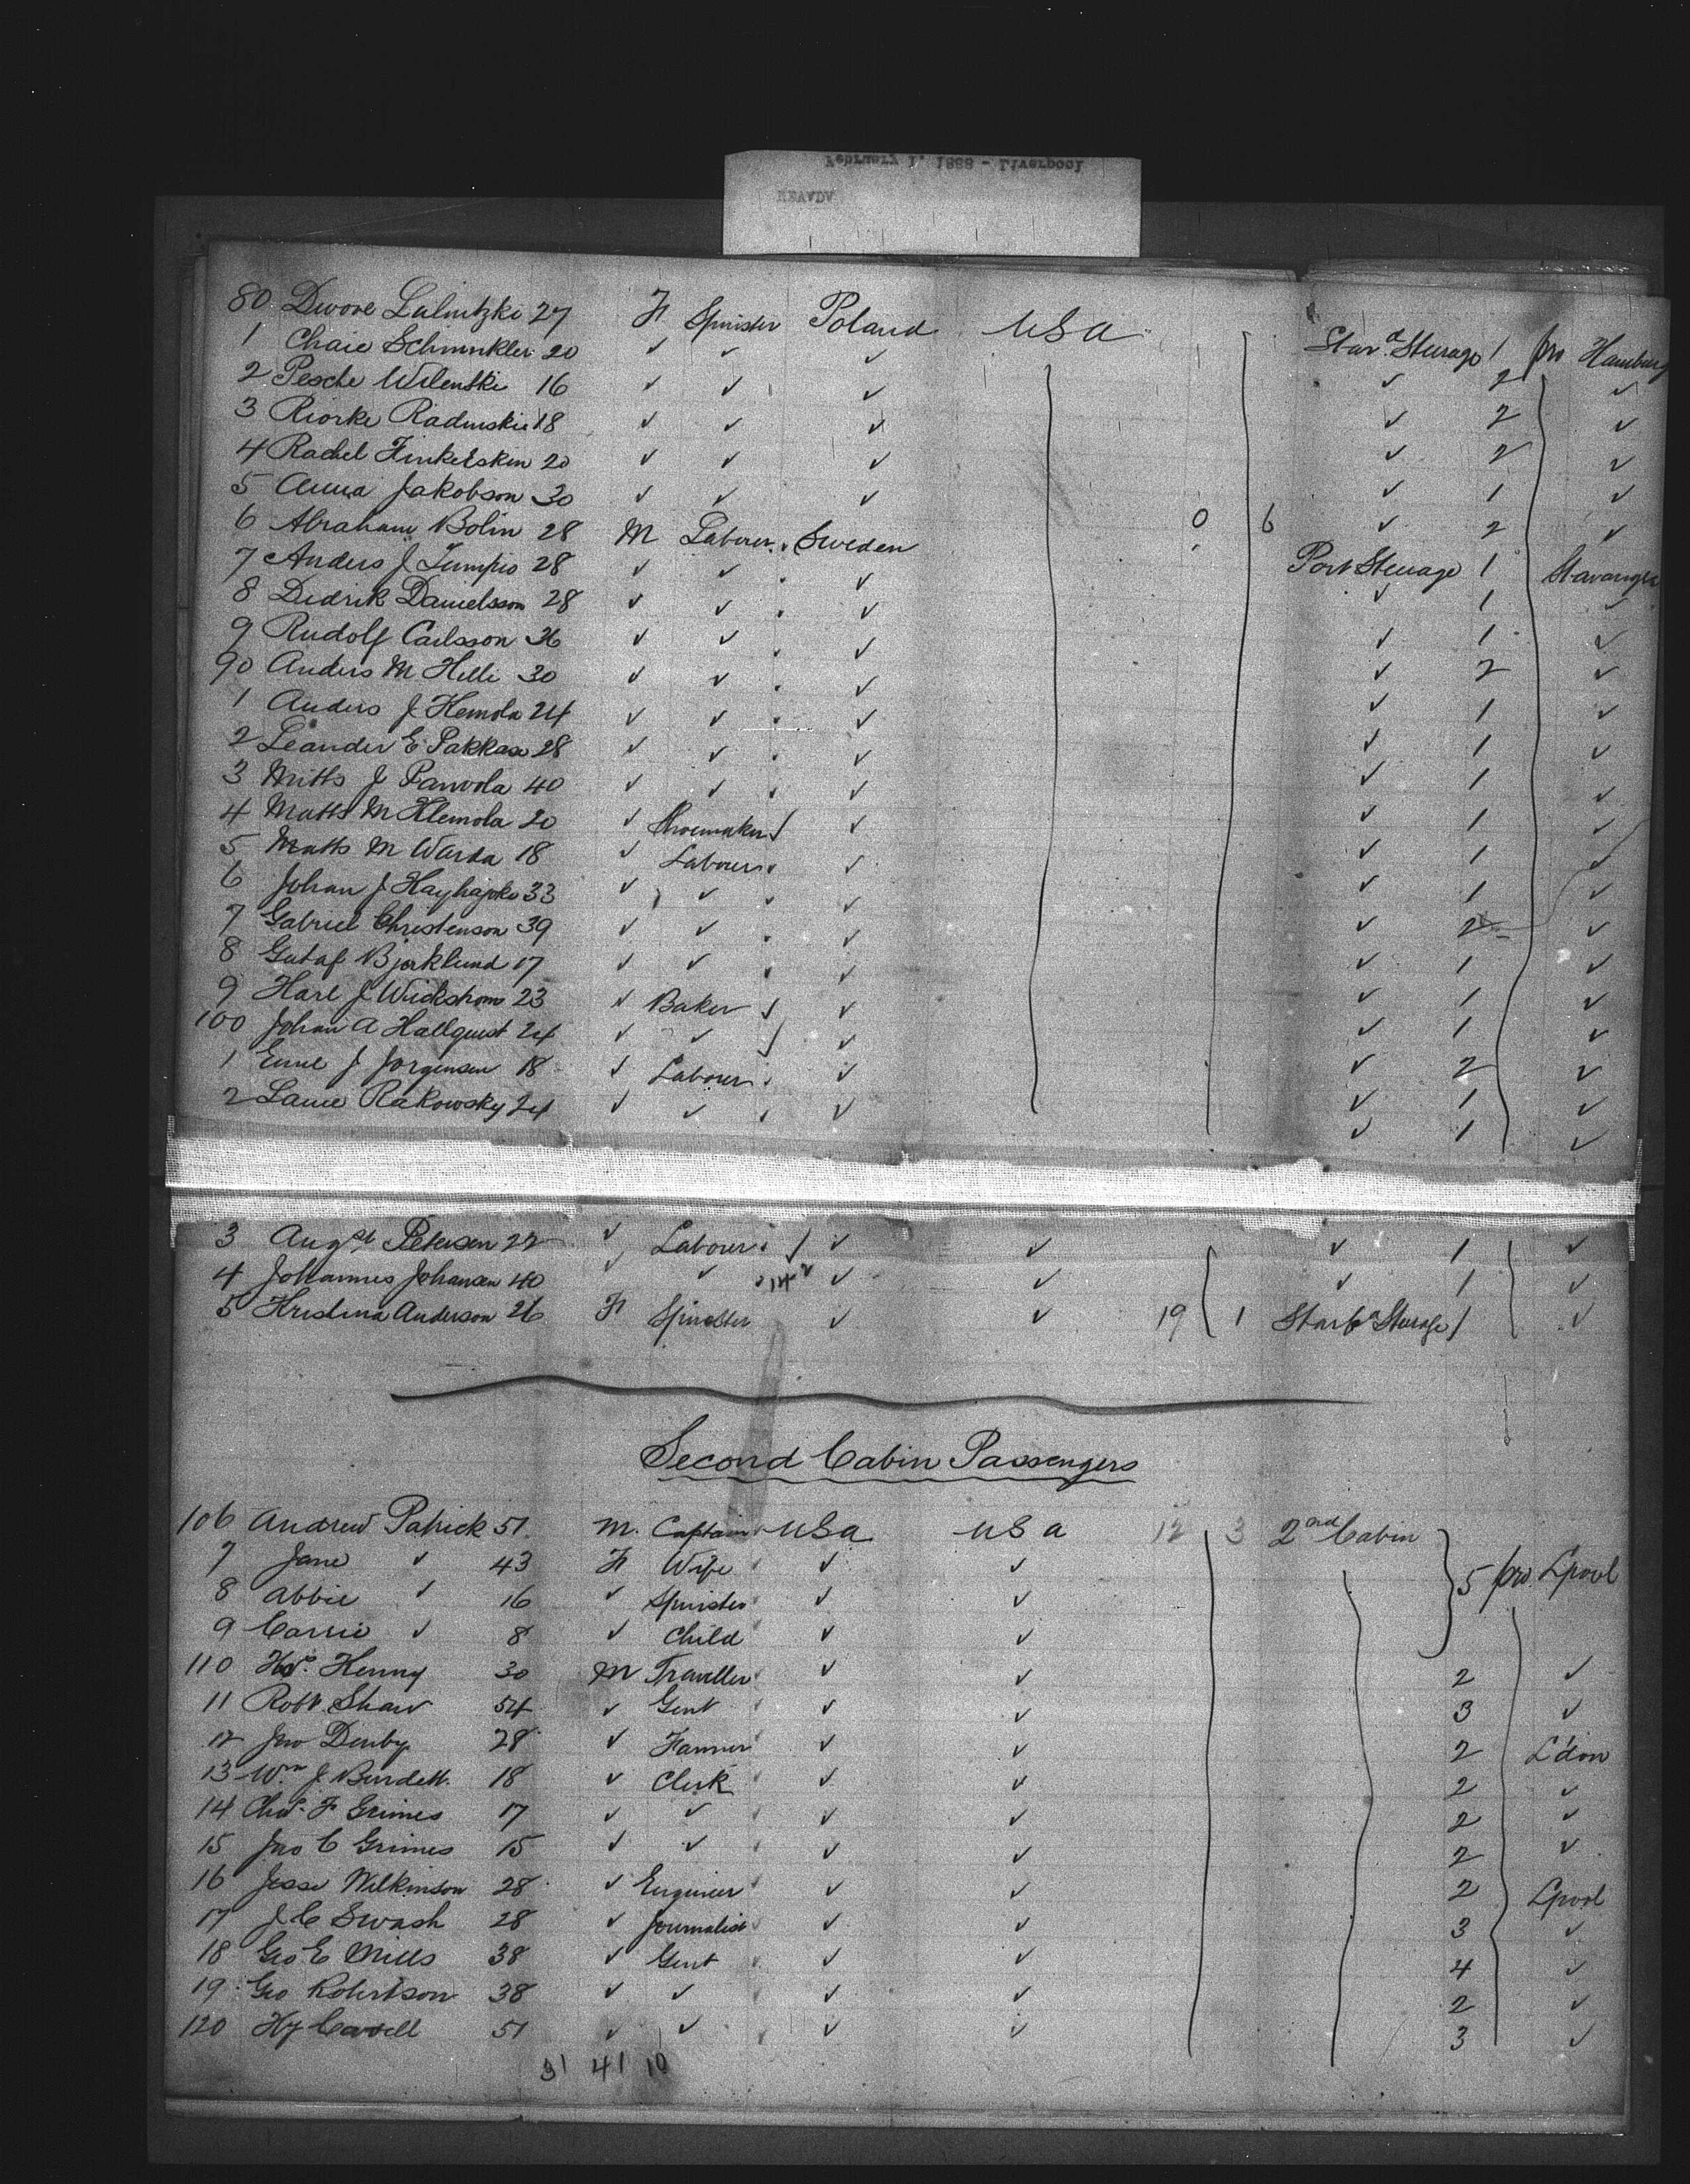 February 1, 1888 - Liverpool
80 Dwore Lalnitzki 27 F Spinster Poland USA Starbd Steerage 1 pro Hamburg
1 Chaie Schmunkler 20 ✓ ✓ ✓ ✓ 2 ✓
2 Pesche Wilenski 16 ✓ ✓ ✓ ✓ 2 ✓
3 Riorke Radinskie 18 ✓ ✓ ✓ ✓ 2 ✓
4 Rachel Finkelsken 20 ✓ ✓ ✓ ✓ 1 ✓
5 Anna Jakobson 30 ✓ ✓ ✓ 0 6 ✓ 2 ✓
6 Abraham Bolin 28 M Laborer Sweden Port Steerage 1 Stavanger
7 Anders J Lumpio 28 ✓ ✓ ✓ ✓ 1 ✓
8 Didrik Danielsson 28 ✓ ✓ ✓ ✓ 1 ✓
9 Rudolf Carlsson 36 ✓ ✓ ✓ ✓ 2 ✓
90 Anders M Hilli 30 ✓ ✓ ✓ ✓ 1 ✓
1 Anders J Hemola 24 ✓ ✓ ✓ ✓ 1 ✓
2 Leander E Pakkax 28 ✓ ✓ ✓ ✓ 1 ✓
3 Mitts J Panvola 40 ✓ ✓ ✓ ✓ 1 ✓
4 Matts M Klemola 20 ✓ Shoemaker ✓ ✓ 1 ✓
5 Matts M Warda 18 ✓ Laborer ✓ ✓ 1 ✓
6 Johan J Hayhajoko 33 ✓ ✓ ✓ ✓ 2 ✓
7 Gabriel Christenson 39 ✓ ✓ ✓ ✓ 1 ✓
8 Gustaf Bjorklund 17 ✓ ✓ ✓ ✓ 1 ✓
9 Karl J Wickstrom 23 ✓ Baker ✓ ✓ 1 ✓
100 Johan A Hallquist 24 ✓ ✓ ✓ ✓ 2 ✓
1 Emil J Jorgensen 18 ✓ Laborer ✓ ✓ 1 ✓
2 Laure Rakowsky 24 ✓ ✓ ✓ ✓ 1 ✓
3 Augst Petersen 22 ✓ Laborer ✓ ✓ ✓ 1 ✓
4 Johannes Johansen 40 ✓ ✓ 14 ✓ ✓ ✓ 1 ✓
5 Kristina Anderson 26 F Spinster ✓ ✓ 19 1 Starbd Steerage 1 ✓
Second Cabin Passengers
106 Andrew Patrick 51 M. Captain USa USa 12 3 2nd Cabin
7 Jane ✓ 43 F Wife ✓ ✓ 5 pro Lpool
8 Abbie ✓ 16 ✓ Spinster ✓ ✓
9 Carrie ✓ 8 ✓ Child ✓ ✓
110 Kenny 30 M Traveller ✓ ✓ 2 ✓
11 Robt. Shaw 54 ✓ Gent ✓ ✓ 3 ✓
12 Jno Denby 28 ✓ Farmer ✓ ✓ 2 L'don
13 Wm J Burdett. 18 ✓ Clerk ✓ ✓ 2 ✓
14 Chas. F Grimes 17 ✓ ✓ ✓ ✓ 2 ✓
15 Jno C Grimes 15 ✓ ✓ ✓ ✓ 2 ✓
16 Jesse Wilkinson 28 ✓ Engineer ✓ ✓ 2 Lpool
17 J C Swash 28 ✓ Journalist ✓ ✓ 3 ✓
18 Geo E Mills 38 ✓ Gent ✓ ✓ 4 ✓
19 Geo Robertson 38 ✓ ✓ ✓ ✓ 2 ✓
120 Hy Cavell 51 ✓ ✓ ✓ ✓ 3 ✓
31 41 10